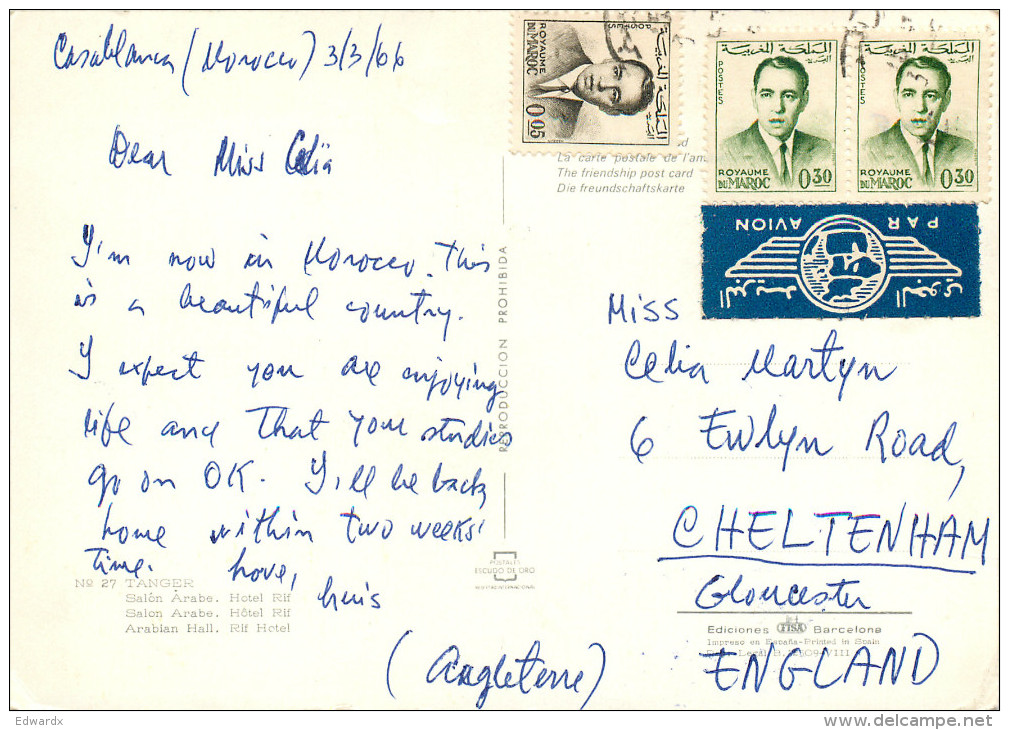 Casablanca (Morocco) 3/3/66
Dear Miss Celia
I'm now in Morocco. This
is a beautiful country.
I expect you are enjoying
life and that your studies
go on OK. I'll be back
home within two weeks'
time. Love,
Luis
Nº 27 TANGER
Salón Arabe. Hotel Rif
Salon Arabe. Hôtel Rif
Arabian Hall. Rif Hotel
REPRODUCCION PROHIBIDA
POSTALES
ESCUDO DE ORO
La carte postale de l'am
The friendship post card
Die freundschaftskarte
POSTES
ROYAUME
DU MAROC
0.05
المملكة المغربية
POSTES
المملكة المغربية
ROYAUME
DU MAROC 0.30
POSTES
المملكة المغربية
ROYAUME
DU MAROC 0.30
PAR AVION
Miss
Celia Martyn
6 Evelyn Road,
CHELTENHAM
Gloucester
ENGLAND
(Angleterre)
Ediciones FISA Barcelona
Impreso en España-Printed in Spain
Edwardx
delcampe.net